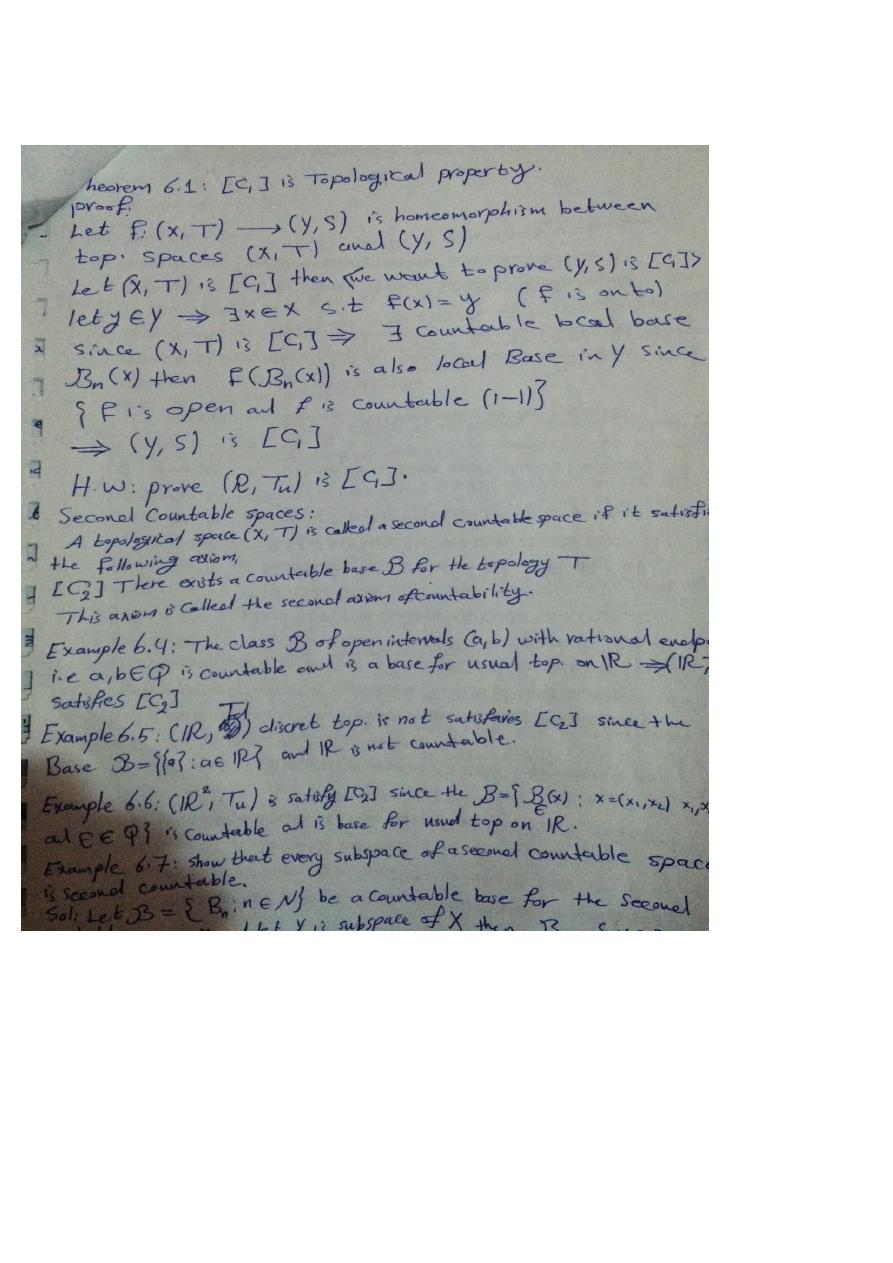 heorem 6.1: [C₁] is Topological property.
proof:
Let f: (X, T) ⟶ (Y, S) is homeomorphism between
top. spaces (X, T) and (Y, S)
Let (X, T) is [C₁] then <we want to prove (Y, S) is [C₁]>
let y ∈ Y ⇒ ∃ x ∈ X s.t f(x) = y ( f is onto)
since (X, T) is [C₁] ⇒ ∃ countable local base
Bn(x) then f(Bn(x)) is also local Base in Y since
{ f is open ad f is countable (1-1)}
⇒ (Y, S) is [C₁]
H.W: prove (R, Tu) is [C₁].
Second Countable spaces:
A topological space (X, T) is called a second countable space if it satisfi
the following axiom,
[C₂] There exists a countable base B for the topology T
This axiom is Called the second axiom of countability.
Example 6.4: The class B of open intervals (a, b) with rational endp
i.e a, b ∈ Q is countable and is a base for usual top. on IR ⇒ (IR,
satisfies [C₂]
Example 6.5: (IR, Td) discret top. is not satisfaies [C₂] since the
Base B = {{a} : a ∈ IR} and IR is not countable.
Example 6.6: (IR², Tu) is satisfy [C₂] since the B = { B∈(x) : x = (x₁, x₂) x₁, x
ad ∈ ∈ Q} is countable ad is base for usual top on IR.
Example 6.7: show that every subspace of a second countable space
is second countable.
Sol: Let B = { Bn : n ∈ N} be a countable base for the second
let Y is subspace of X then B